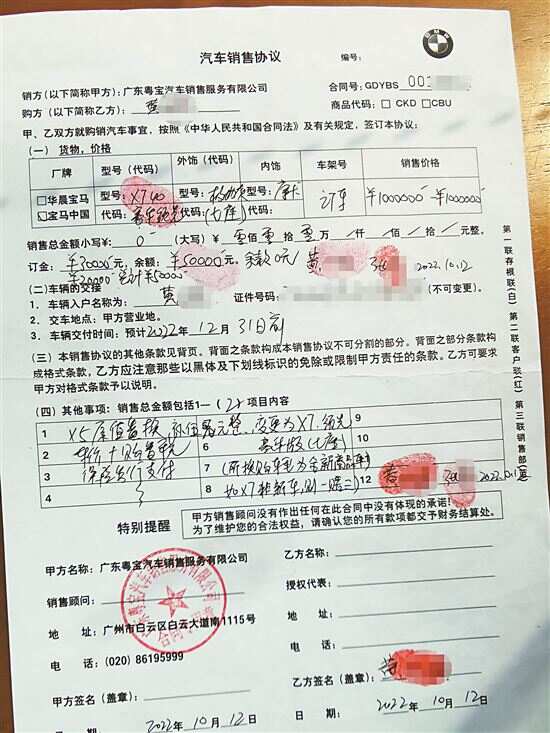 汽车销售协议
编号:
销方(以下简称甲方):广东粤宝汽车销售服务有限公司
合同号:GDYBS 001
购方(以下简称乙方):
商品代码:□ CKD □CBU
甲、乙双方就购销汽车事宜,按照《中华人民共和国合同法》及有关规定,签订本协议:
(一)货物,价格
厂牌 型号(代码) 外饰(代码) 内饰 车架号 销售价格
□华晨宝马 型号: X7 40 型号: 型号: 订车 ¥1000000 ¥1000000
宝马中国 代码: 豪华领先 代码: (七座) 代码:
销售总金额小写¥: 0 (大写)¥: 零佰零拾零万/仟/佰/拾/元整。
订金: ¥30000元,余额: ¥50000元。余款0元 黄 2022.10.12
¥20000
(二)车辆的交接
1.车辆入户名称为: 黄 证件号码: (不可变更)。
2.交车地点:甲方营业地。
3.车辆交付时间:预计2022年12月31日前
(三)本销售协议的其他条款见背页。背面之条款构成本销售协议不可分割的部分。背面之部分条款构
成格式条款,乙方应注意那些以黑体及下划线标识的免除或限制甲方责任的条款。乙方可要求
甲方对格式条款予以说明。
(四)其他事项:销售总金额包括1—(2)项目内容
1 X5原值置换 补偿零元整,变更为X7.领先 9
2 车价+购置税 6 豪华版(七座) 10
3 保险自行支付 7 (所换购车辆为全新商品车)
4 8 如X7非新车,则一赔三) 12 2022.10.12
特别提醒
甲方销售顾问没有作出任何在此合同中没有体现的承诺!
为了维护您的合法权益,请确认您的所有款项都交予财务结算处。
甲方名称:广东粤宝汽车销售服务有限公司
乙方名称:
销售顾问:
授权代表:
地 址:广州市白云区白云大道南1115号
地 址:
电 话:(020)86195999
电 话:
甲方签名(盖章):
乙方签名(盖章):
日 期: 2022年10月12日
日 期: 2022年10月12日
第一联存根联(白) 第二联客户联(红) 第三联销售部
广东粤宝汽车销售服务有限公司